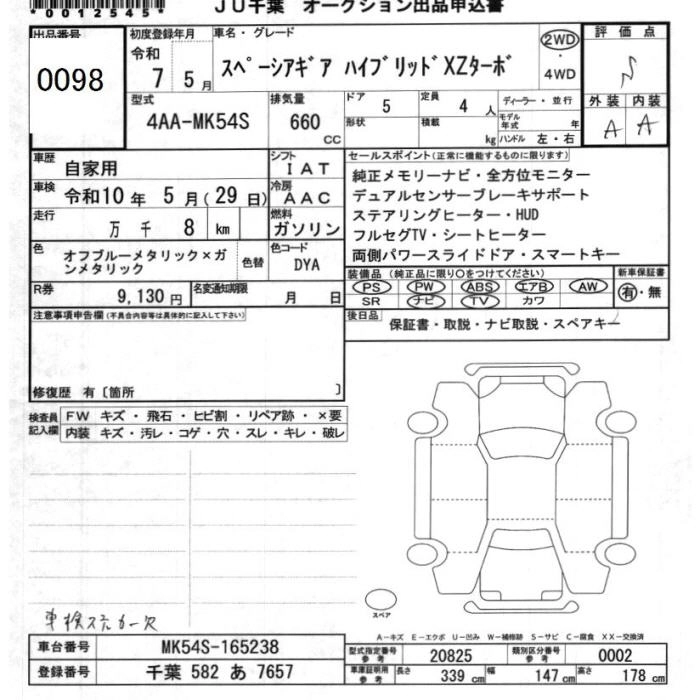 *0012545*
JU千葉 オークション出品申込書
出品番号
0098
初度登録年月
令和
7 5 月
車名・グレード
スペーシアギア ハイブリッドXZターボ
2WD
・
4WD
評価点
S
型式
4AA-MK54S
排気量
660
CC
ドア 5
定員 4 人
形状
積載 kg
ディーラー・並行
モデル年式 年
ハンドル 左・右
外装 内装
A A
車歴 自家用
シフト I AT
車検 令和10 年 5 月(29 日)
冷房 AAC
走行 万 千 8 km
燃料 ガソリン
色 オフブルーメタリック×ガンメタリック
色替
色コード DYA
R券 9,130 円
名変通知期限 月 日
セールスポイント(正常に機能するものに限ります)
純正メモリーナビ・全方位モニター
デュアルセンサーブレーキサポート
ステアリングヒーター・HUD
フルセグTV・シートヒーター
両側パワースライドドア・スマートキー
装備品(純正品に限り○をつけてください)
PS PW ABS エアB AW
SR ナビ TV カワ
新車保証書
有・無
後日品 保証書・取説・ナビ取説・スペアキー
注意事項申告欄(不具合内容等は具体的に記入して下さい)
修復歴 有〔箇所 〕
検査員記入欄
FW キズ・飛石・ヒビ割・リペア跡・×要
内装 キズ・汚レ・コゲ・穴・スレ・キレ・破レ
車検ステッカー欠
スペア
A-キズ E-エクボ U-凹み W-補修跡 S-サビ C-腐食 XX-交換済
車台番号 MK54S-165238
登録番号 千葉 582 あ 7657
型式指定番号 参考 20825
類別区分番号 参考 0002
車庫証明用 参考 長さ 339 cm 幅 147 cm 高さ 178 cm